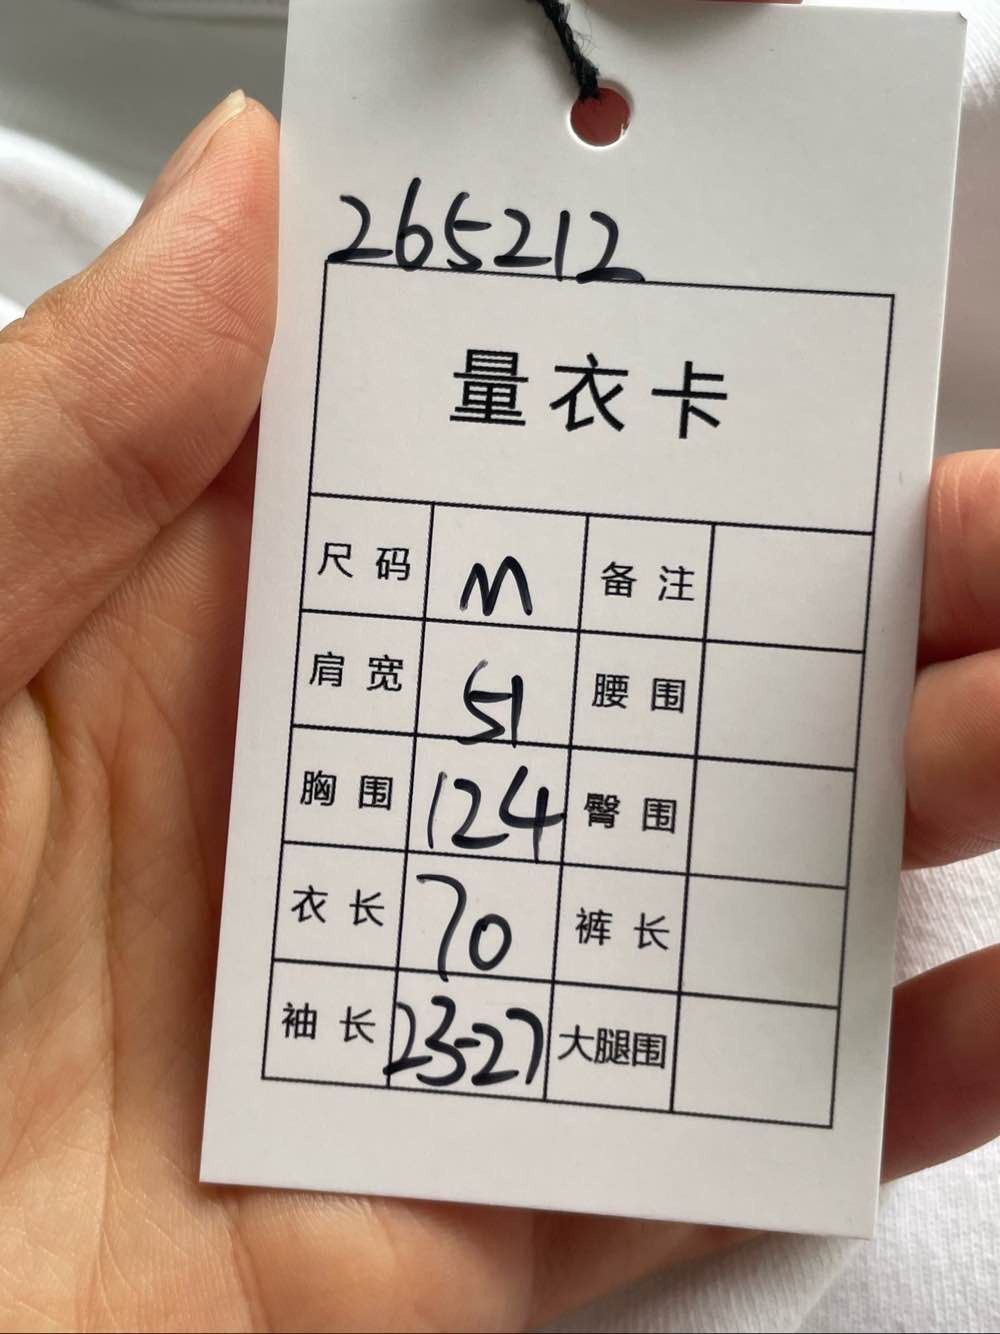 265212
量衣卡
尺码 M 备注
肩宽 51 腰围
胸围 124 臀围
衣长 70 裤长
袖长 23-27 大腿围